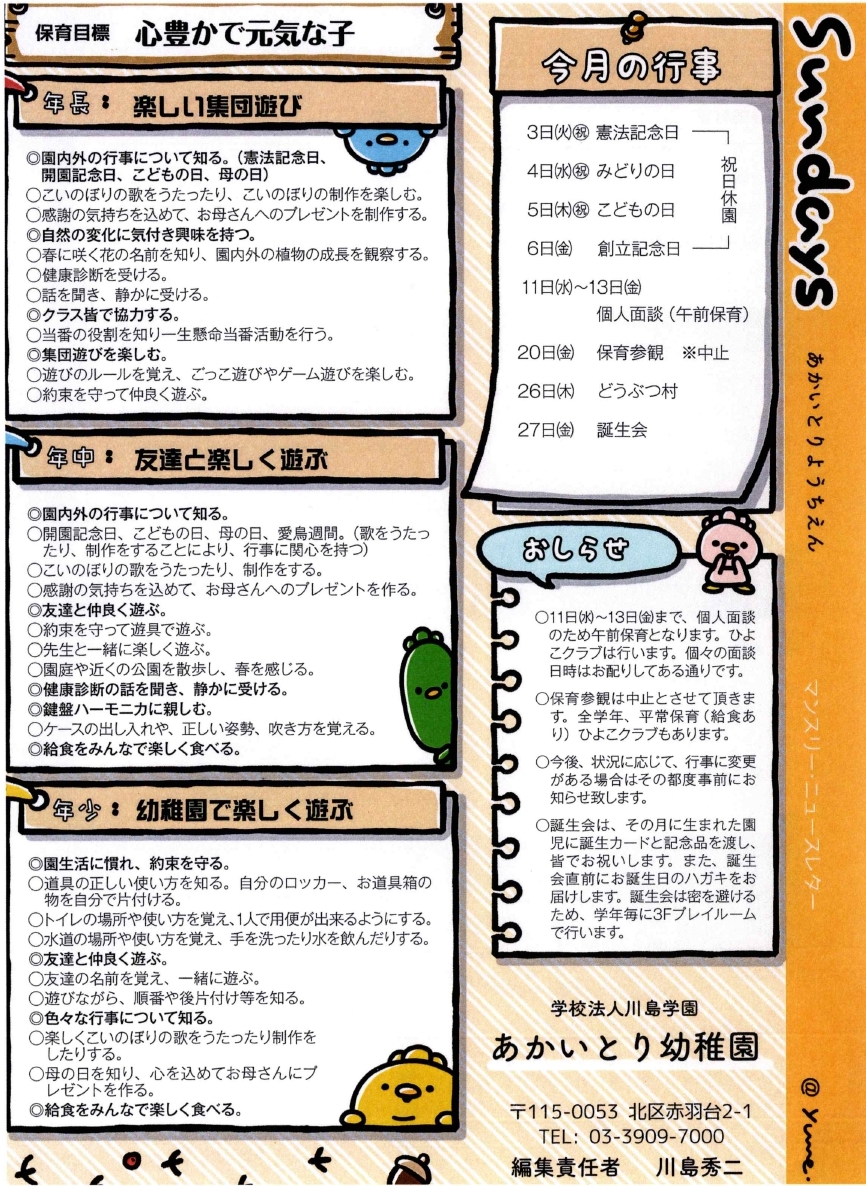 保育目標 心豊かで元気な子
年長： 楽しい集団遊び
◎園内外の行事について知る。（憲法記念日、
開園記念日、こどもの日、母の日）
○こいのぼりの歌をうたったり、こいのぼりの制作を楽しむ。
○感謝の気持ちを込めて、お母さんへのプレゼントを制作する。
◎自然の変化に気付き興味を持つ。
○春に咲く花の名前を知り、園内外の植物の成長を観察する。
○健康診断を受ける。
○話を聞き、静かに受ける。
◎クラス皆で協力する。
○当番の役割を知り一生懸命当番活動を行う。
◎集団遊びを楽しむ。
○遊びのルールを覚え、ごっこ遊びやゲーム遊びを楽しむ。
○約束を守って仲良く遊ぶ。
年中： 友達と楽しく遊ぶ
◎園内外の行事について知る。
○開園記念日、こどもの日、母の日、愛鳥週間。（歌をうたっ
たり、制作をすることにより、行事に関心を持つ）
○こいのぼりの歌をうたったり、制作をする。
○感謝の気持ちを込めて、お母さんへのプレゼントを作る。
◎友達と仲良く遊ぶ。
○約束を守って遊具で遊ぶ。
○先生と一緒に楽しく遊ぶ。
○園庭や近くの公園を散歩し、春を感じる。
◎健康診断の話を聞き、静かに受ける。
◎鍵盤ハーモニカに親しむ。
○ケースの出し入れや、正しい姿勢、吹き方を覚える。
◎給食をみんなで楽しく食べる。
年少： 幼稚園で楽しく遊ぶ
◎園生活に慣れ、約束を守る。
○道具の正しい使い方を知る。自分のロッカー、お道具箱の
物を自分で片付ける。
○トイレの場所や使い方を覚え、1人で用便が出来るようにする。
○水道の場所や使い方を覚え、手を洗ったり水を飲んだりする。
◎友達と仲良く遊ぶ。
○友達の名前を覚え、一緒に遊ぶ。
○遊びながら、順番や後片付け等を知る。
◎色々な行事について知る。
○楽しくこいのぼりの歌をうたったり制作を
したりする。
○母の日を知り、心を込めてお母さんにプ
レゼントを作る。
◎給食をみんなで楽しく食べる。
今月の行事
3日㈫㊗ 憲法記念日
4日㈬㊗ みどりの日
5日㈭㊗ こどもの日
6日㈮ 創立記念日
祝日休園
11日㈬～13日㈮
個人面談（午前保育）
20日㈮ 保育参観 ※中止
26日㈭ どうぶつ村
27日㈮ 誕生会
おしらせ
○11日㈬～13日㈮まで、個人面談
のため午前保育となります。ひよ
こクラブは行います。個々の面談
日時はお配りしてある通りです。
○保育参観は中止とさせて頂きま
す。全学年、平常保育（給食あ
り）ひよこクラブもあります。
○今後、状況に応じて、行事に変更
がある場合はその都度事前にお
知らせ致します。
○誕生会は、その月に生まれた園
児に誕生カードと記念品を渡し、
皆でお祝いします。また、誕生
会直前にお誕生日のハガキをお
届けします。誕生会は密を避ける
ため、学年毎に3Fプレイルーム
で行います。
学校法人川島学園
あかいとり幼稚園
〒115-0053 北区赤羽台2-1
TEL: 03-3909-7000
編集責任者 川島秀二
Sundays
あかいとりようちえん
マンスリー・ニュースレター
@ Yume.